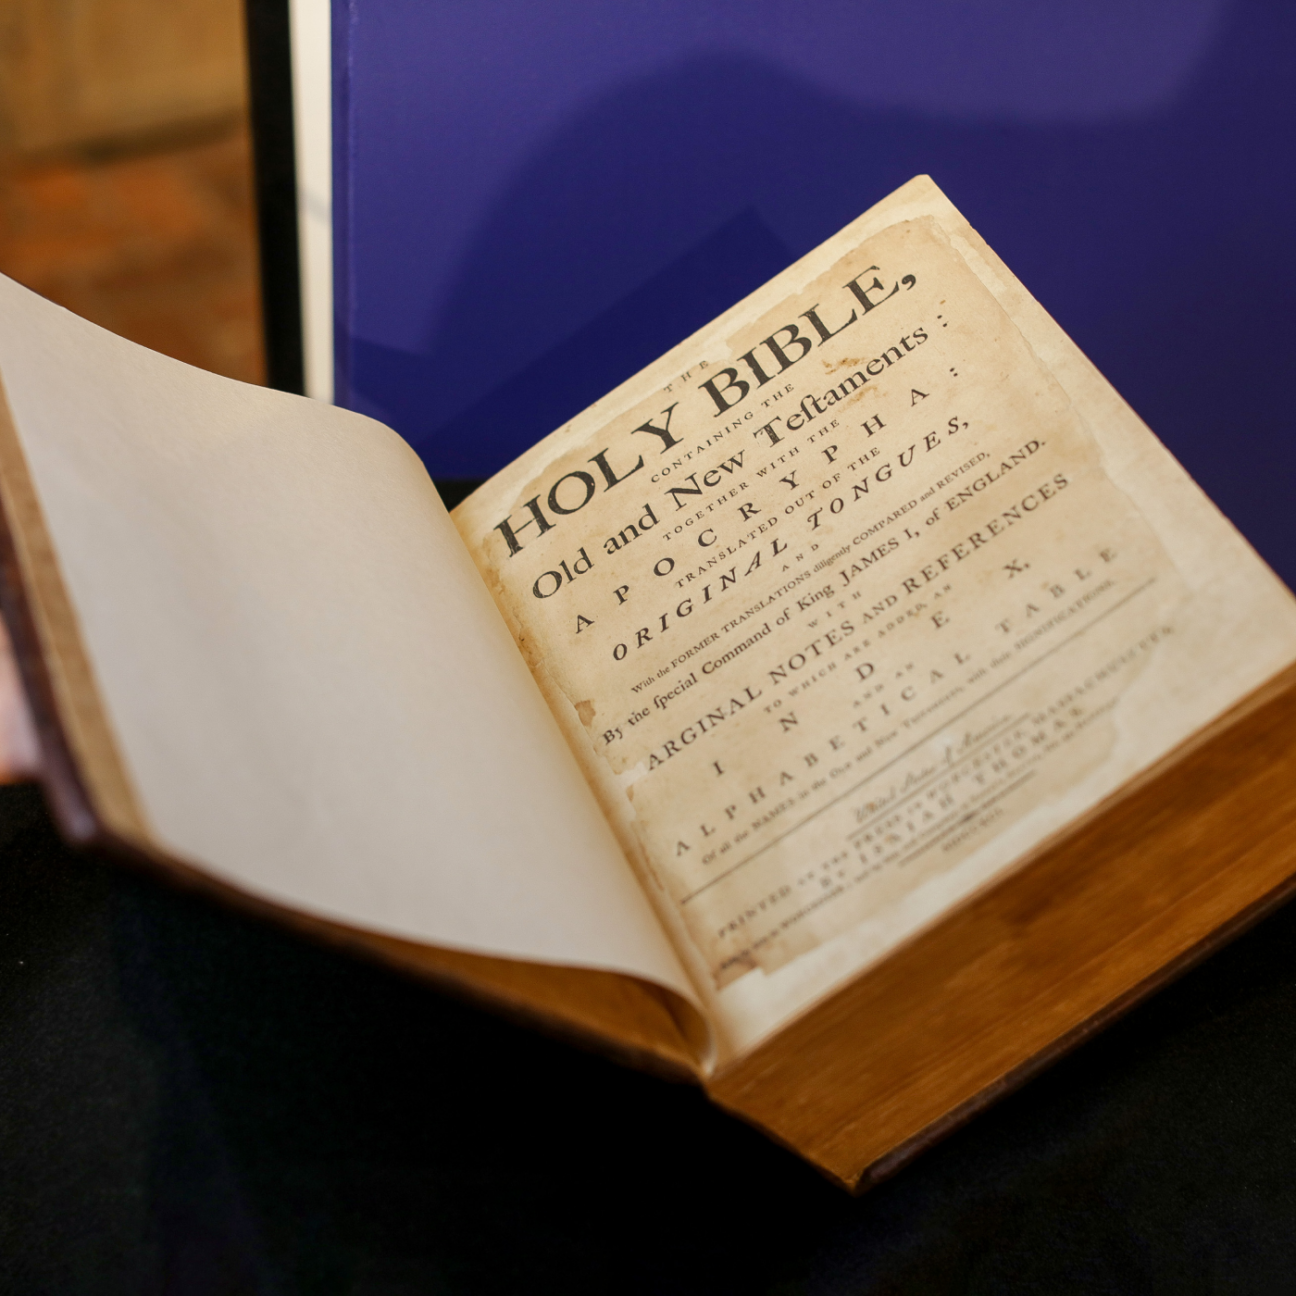 THE
HOLY BIBLE,
CONTAINING THE
Old and New Teſtaments :
TOGETHER WITH THE
APOCRYPHA :
TRANSLATED OUT OF THE
ORIGINAL TONGUES,
AND
With the FORMER TRANSLATIONS diligently COMPARED and REVISED,
By the ſpecial Command of King JAMES I, of ENGLAND.
WITH
ARGINAL NOTES AND REFERENCES
TO WHICH ARE ADDED, AN
INDEX,
AND AN
ALPHABETICAL TABLE
Of all the NAMES in the OLD and NEW TESTAMENTS, with their SIGNIFICATIONS.
United States of America
PRINTED AT THE PRESS IN WORCESTER, MASSACHUSETTS,
BY ISAIAH THOMAS